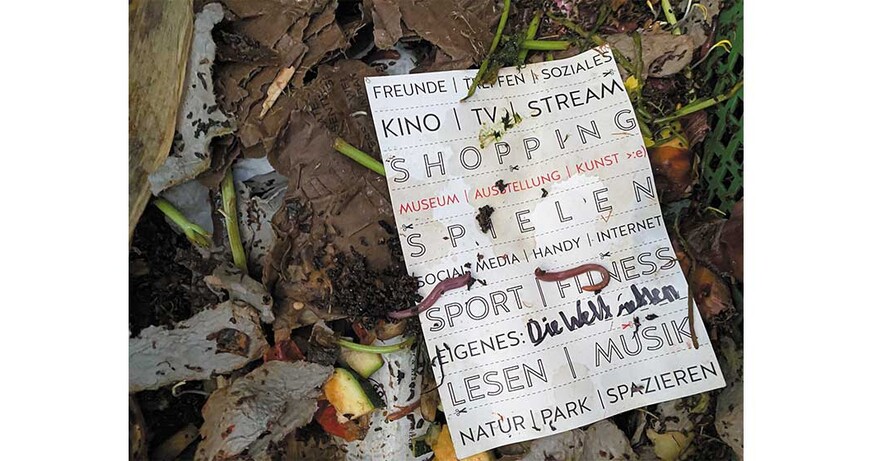 FREUNDE | TREFFEN | SOZIALES
KINO | TV | STREAM
SHOPPING
MUSEUM | AUSSTELLUNG | KUNST >:e)
SPIELEN
SOCIAL MEDIA | HANDY | INTERNET
SPORT | FITNESS
EIGENES: Die Welt
LESEN | MUSIK
NATUR | PARK | SPAZIEREN